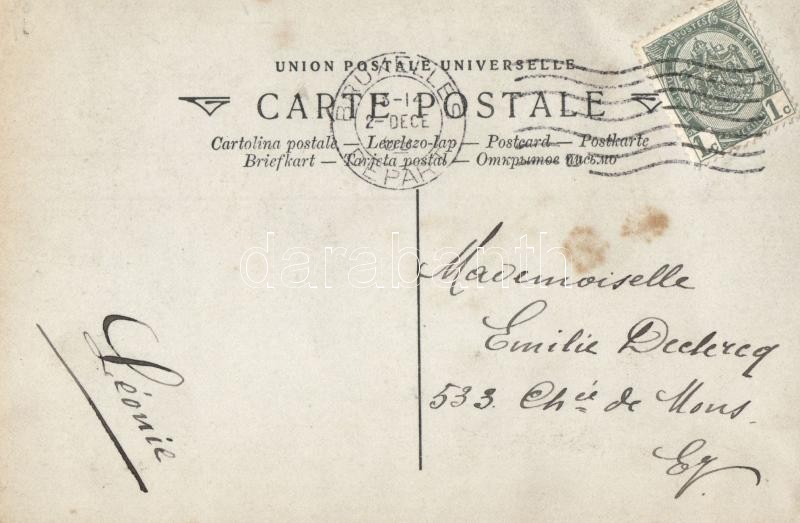 UNION POSTALE UNIVERSELLE
CARTE POSTALE
Cartolina postale — Levelezo-lap — Postcard — Postkarte
Briefkart — Tarjeta postal — Открытое письмо
BRUXELLES
2- DECE
DEPART
POSTES BELGIQUE
1c 1c
darabanth
Mademoiselle
Emilie Declercq
533. Chée de Mons.
Léonie